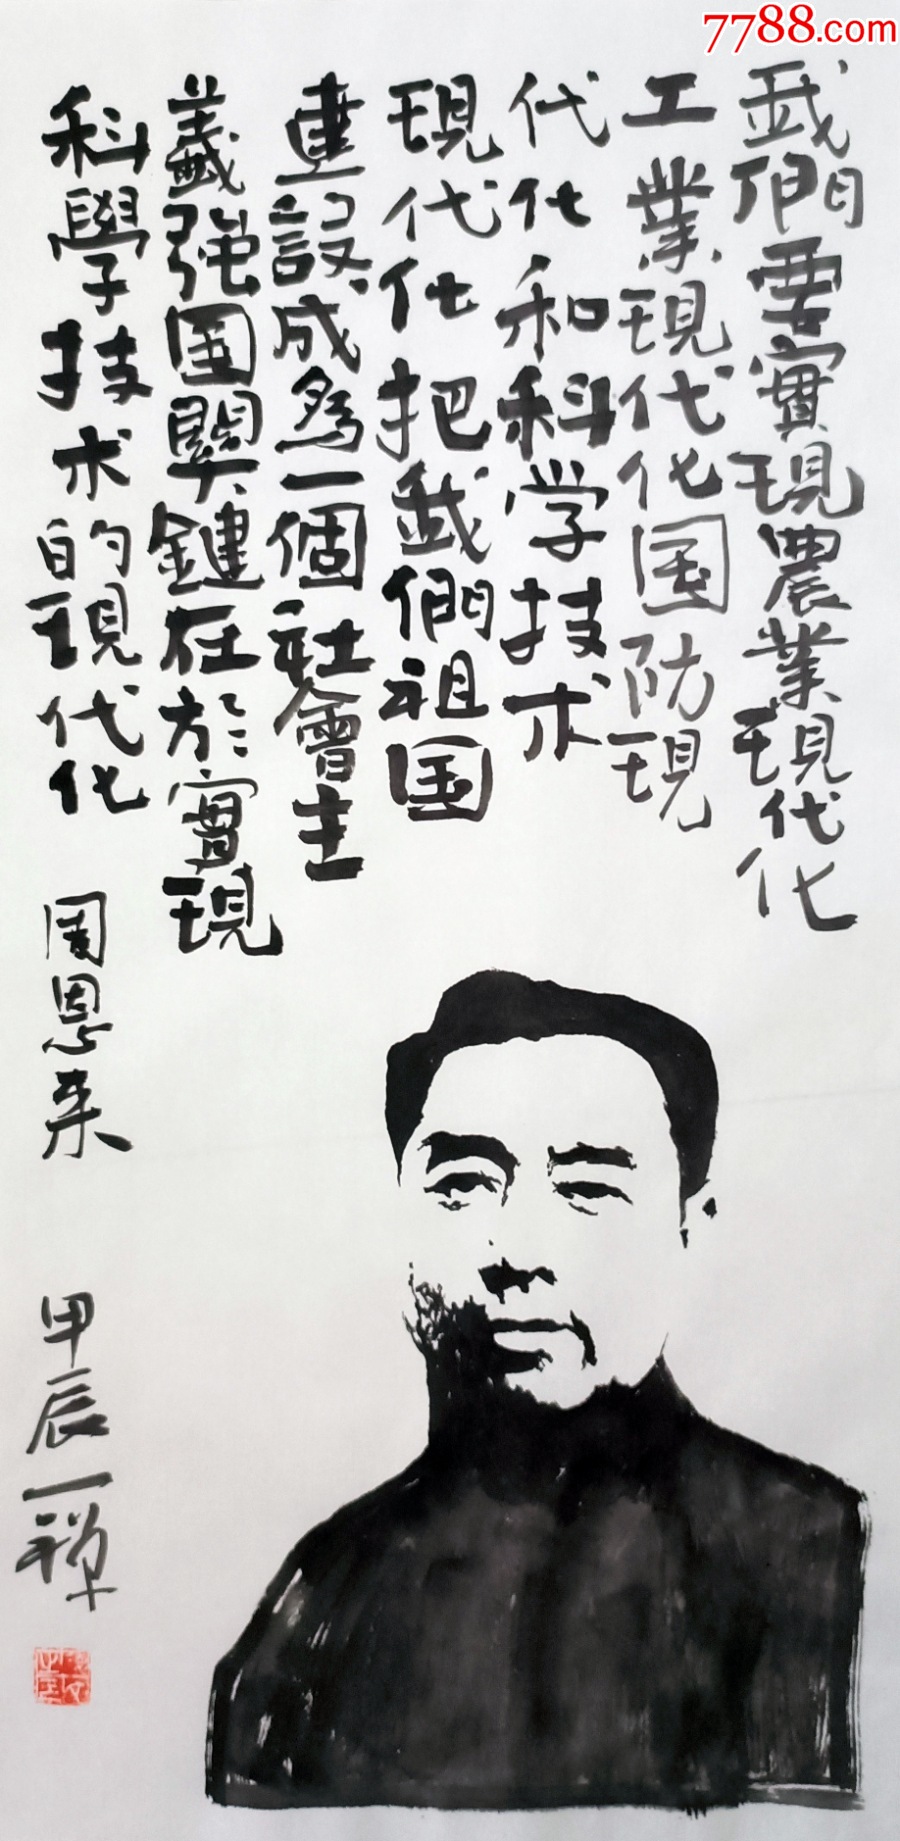 7788.com
我們要實現農業現代化
工業現代化国防現
代化和科学技术
現代化把我們祖国
建設成為一個社會主
義强国関鍵在於實現
科學技术的現代化
周恩来
甲辰一禅